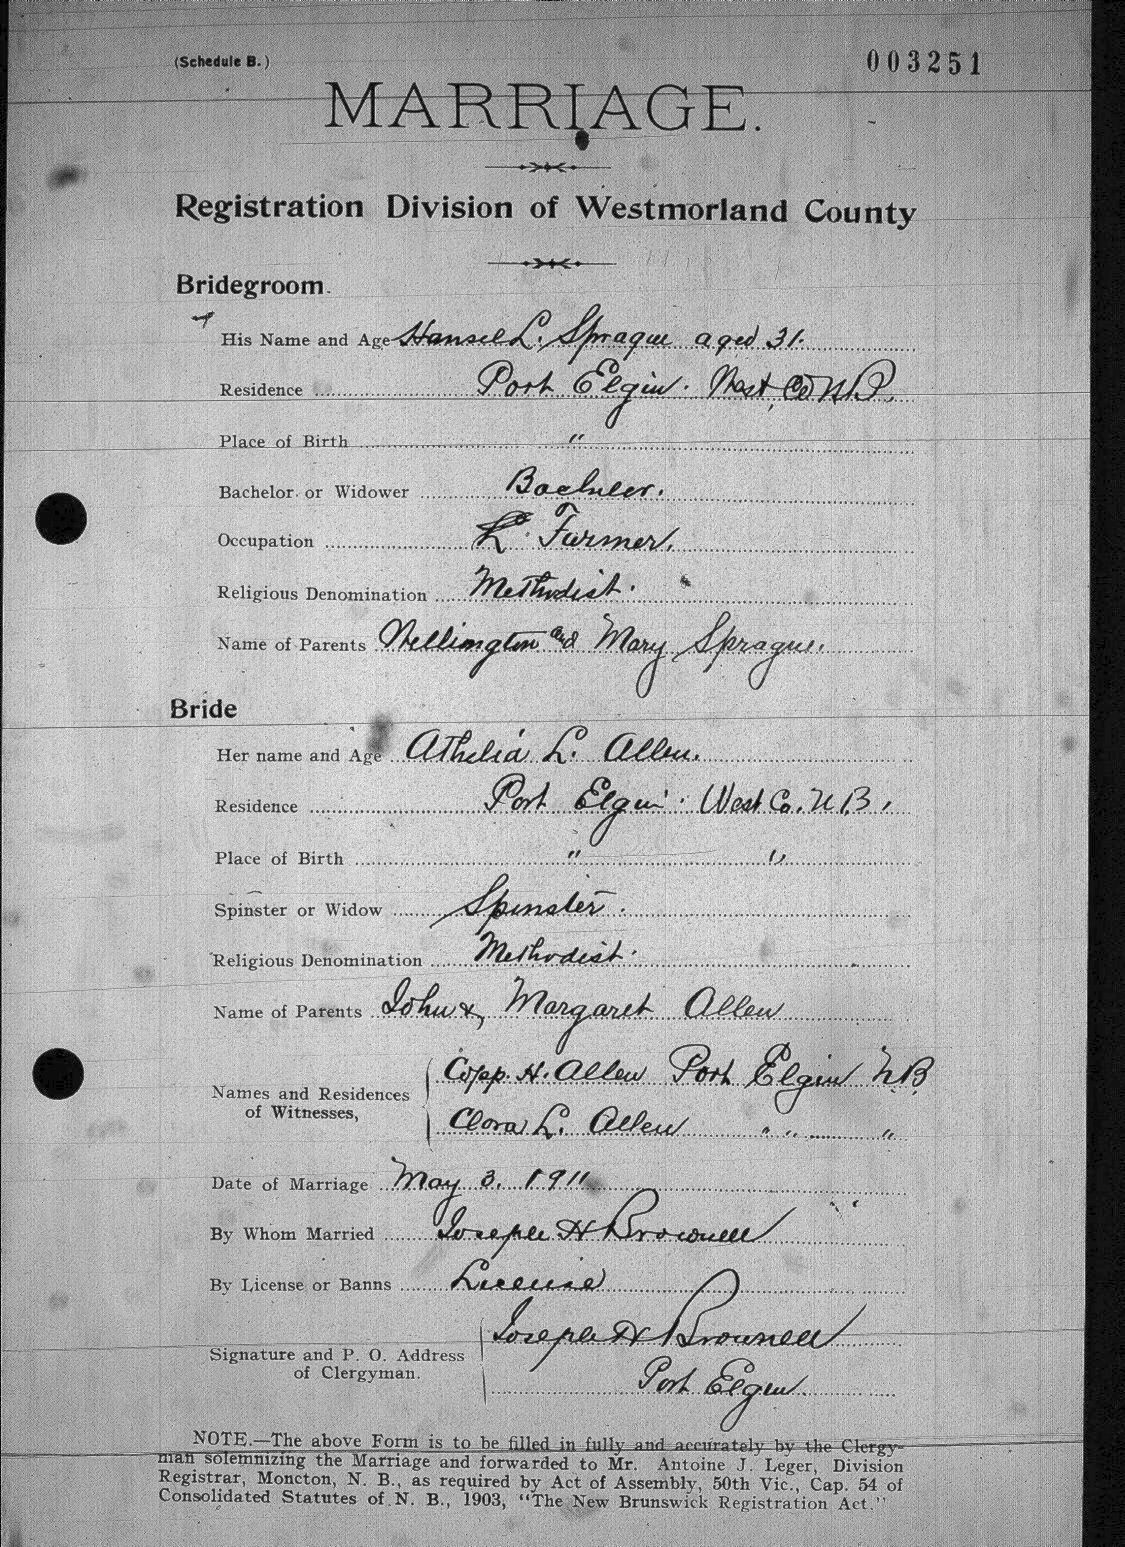 (Schedule B.) 003251
MARRIAGE.
Registration Division of Westmorland County
Bridegroom.
His Name and Age Hansel L. Sprague aged 31.
Residence Port Elgin. West, Co N.B.
Place of Birth "
Bachelor or Widower Bachelor.
Occupation Farmer.
Religious Denomination Methodist.
Name of Parents Wellington and Mary Sprague.
Bride
Her name and Age Athelia L. Allen.
Residence Port Elgin. West Co. N.B.
Place of Birth " "
Spinster or Widow Spinster.
Religious Denomination Methodist.
Name of Parents John & Margaret Allen
Names and Residences
of Witnesses,
Copp. H. Allen Port Elgin N.B.
Clora L. Allen " " "
Date of Marriage May 3. 1911
By Whom Married Joseph H Brownell
By License or Banns License
Signature and P. O. Address
of Clergyman.
Joseph H Brownell
Port Elgin.
NOTE.—The above Form is to be filled in fully and accurately by the Clergy-
man solemnizing the Marriage and forwarded to Mr. Antoine J. Leger, Division
Registrar, Moncton, N. B., as required by Act of Assembly, 50th Vic., Cap. 54 of
Consolidated Statutes of N. B., 1903, "The New Brunswick Registration Act."